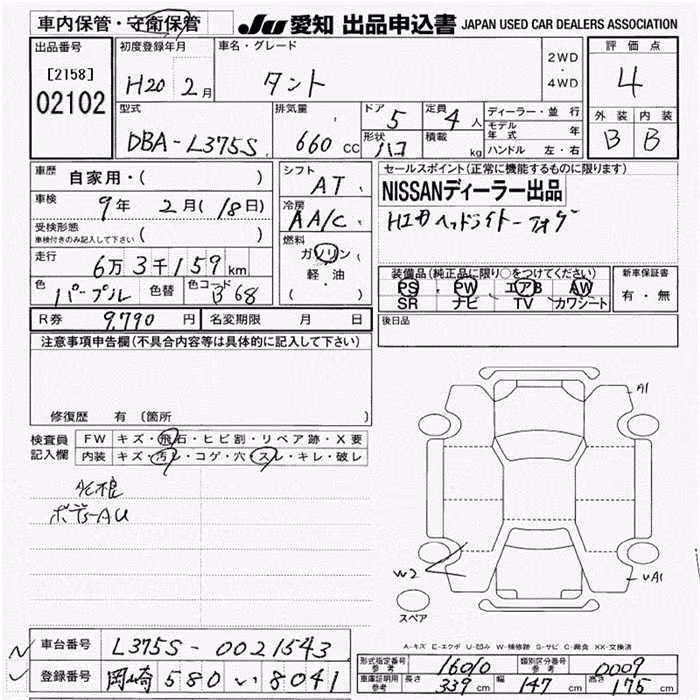 車内保管・守衛保管
JU 愛知 出品申込書 JAPAN USED CAR DEALERS ASSOCIATION
出品番号 初度登録年月 車名・グレード 評価点
[2158] 2WD
02102 H20 2月 タント ・ 4
4WD
型式 排気量 ドア 5 定員 4人 ディーラー・並行 外装 内装
モデル年式 年
DBA-L375S 660 CC 形状 ハコ 積載 kg ハンドル 左・右 B B
車歴 自家用・( )
シフト AT
セールスポイント(正常に機能するものに限ります)
NISSANディーラー出品
車検 9年 2月(18日)
冷房 AA/C
受検形態
車検付きのみ記入して下さい ( )
燃料 ガソリン
軽・油
( )
走行 6万3千159km
色 パープル 色替 色コード B68
装備品(純正品に限り○をつけてください) 新車保証書
PS・PW・エアB・AW 有・無
SR ナビ TV カワシート
R券 9,790円 名変期限 月 日
後日品
注意事項申告欄(不具合内容等は具体的に記入して下さい)
修復歴 有(箇所 )
検査員 FW キズ・飛石・ヒビ割・リペア跡・X要
記入欄 内装 キズ・汚レ・コゲ・穴・スレ・キレ・破レ
A1
W2
UA1
スペア
A-キズ E-エクボ U-凹み W-補修跡 S-サビ C-腐食 XX-交換済
車台番号 L375S-0021543
登録番号 岡崎 580 い 8041
形式指定番号 参考 16010 類別区分番号 参考 0009
車庫証明用 参考 長さ 339cm 幅 147cm 高さ 175cm